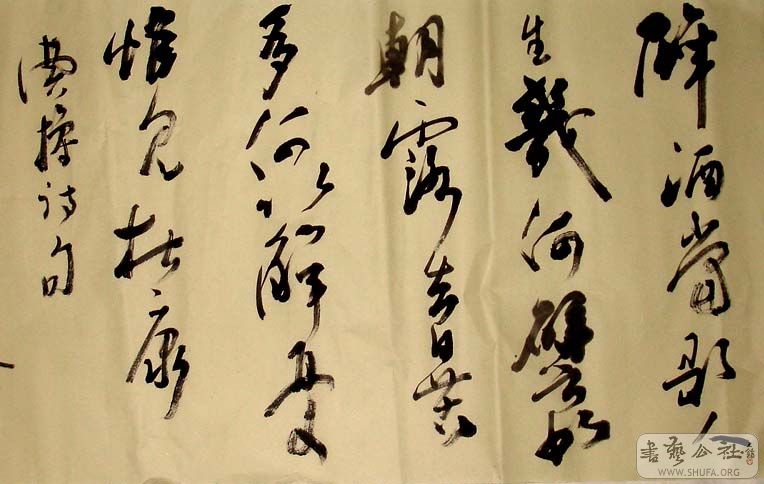 酒當歌人
生幾何譬如
朝露去日苦
多何以解憂
惟見杜康
曹操诗句
書藝公社
WWW.SHUFA.ORG